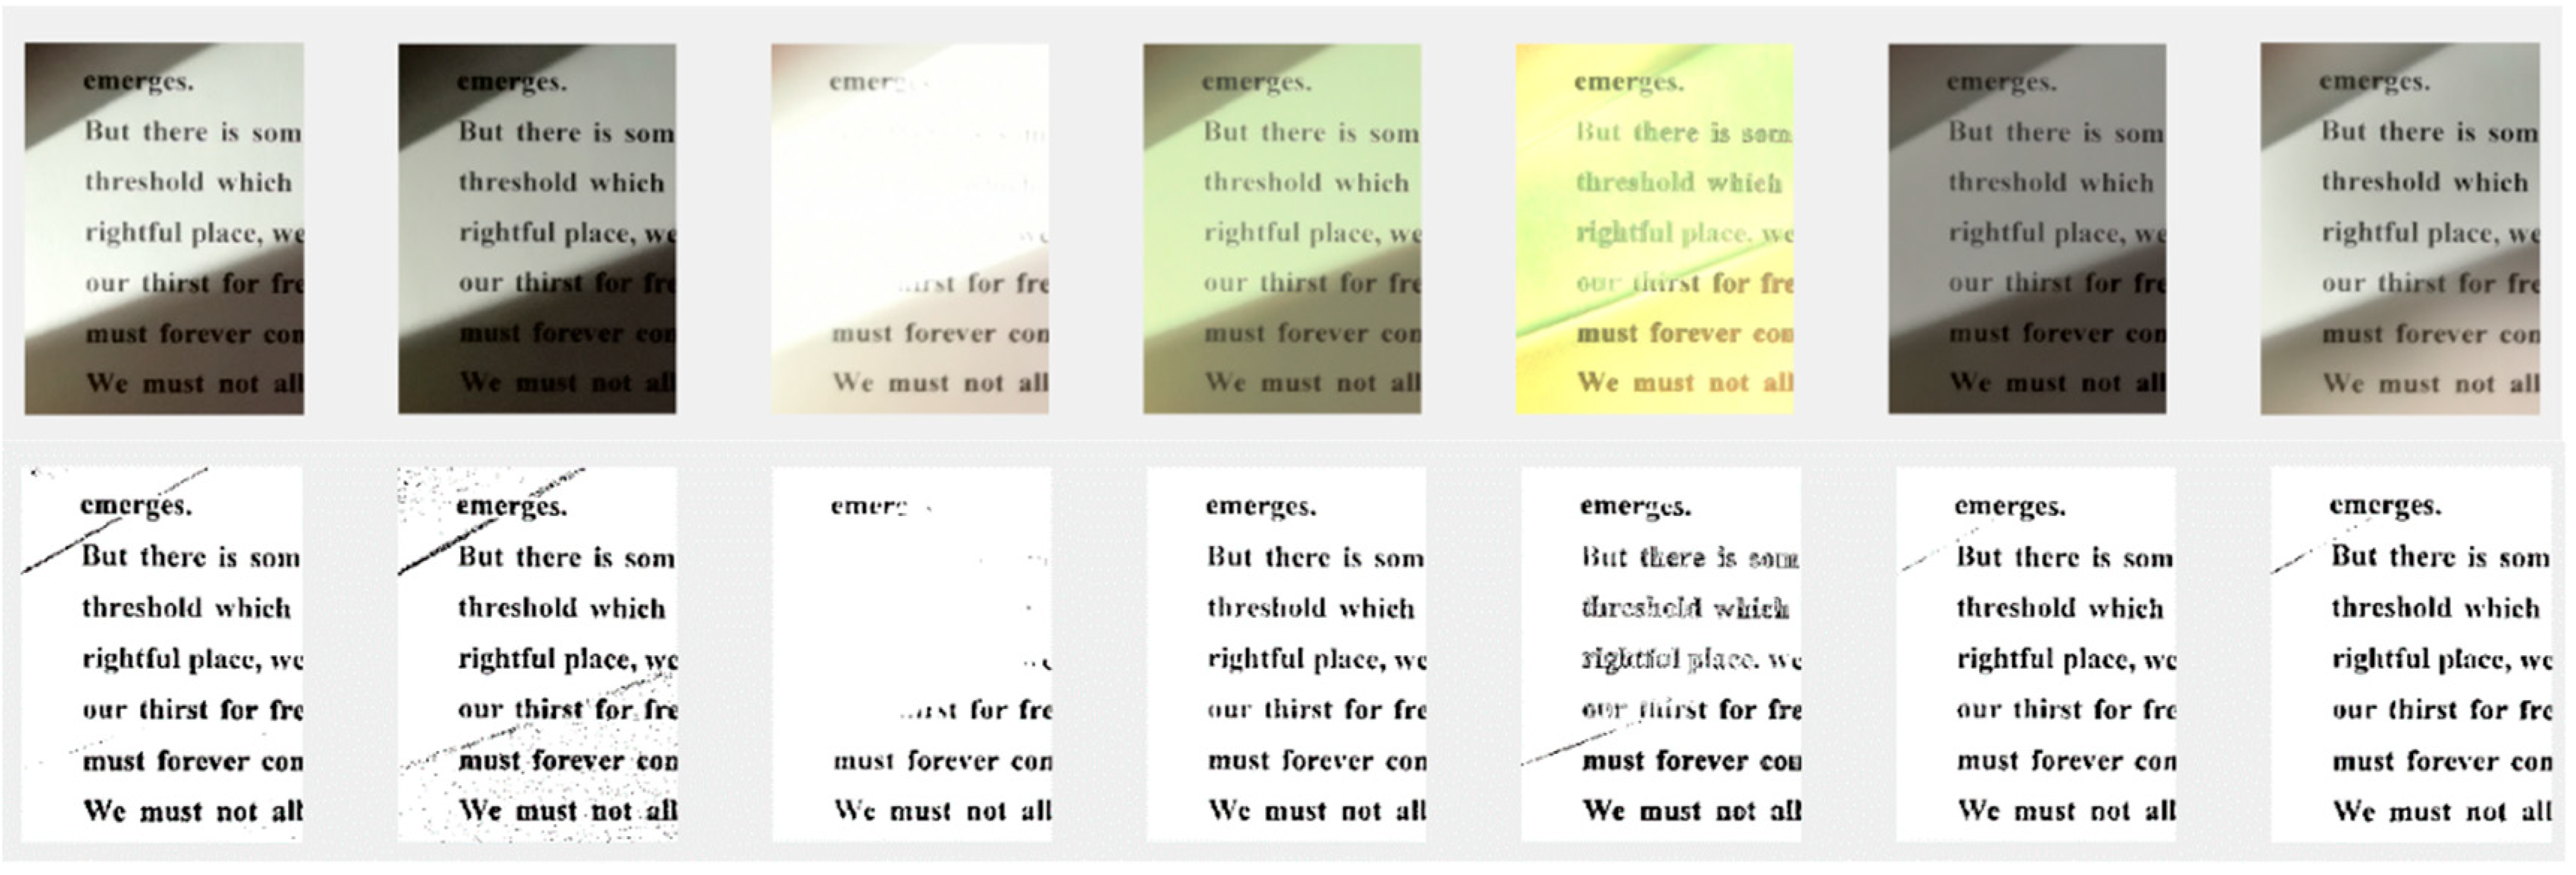 emerges.
But there is som
threshold which
rightful place, we
our thirst for fre
must forever con
We must not all
emerges.
But there is som
threshold which
rightful place, we
our thirst for fre
must forever con
We must not all
for fre
must forever con
We must not all
emerges.
But there is som
threshold which
rightful place, we
our thirst for fre
must forever con
We must not all
emerges.
But there is som
threshold which
rightful place. we
our thirst for fre
must forever con
We must not all
emerges.
But there is som
threshold which
rightful place, we
our thirst for fre
must forever con
We must not all
emerges.
But there is som
threshold which
rightful place, we
our thirst for fre
must forever con
We must not all
emerges.
But there is som
threshold which
rightful place, we
our thirst for fre
must forever con
We must not all
emerges.
But there is som
threshold which
rightful place, we
our thirst for fre
must forever con
We must not all
for fre
must forever con
We must not all
emerges.
But there is som
threshold which
rightful place, we
our thirst for fre
must forever con
We must not all
emerges.
But there is som
threshold which
rightful place. we
our thirst for fre
must forever con
We must not all
emerges.
But there is som
threshold which
rightful place, we
our thirst for fre
must forever con
We must not all
emerges.
But there is som
threshold which
rightful place, we
our thirst for fre
must forever con
We must not all